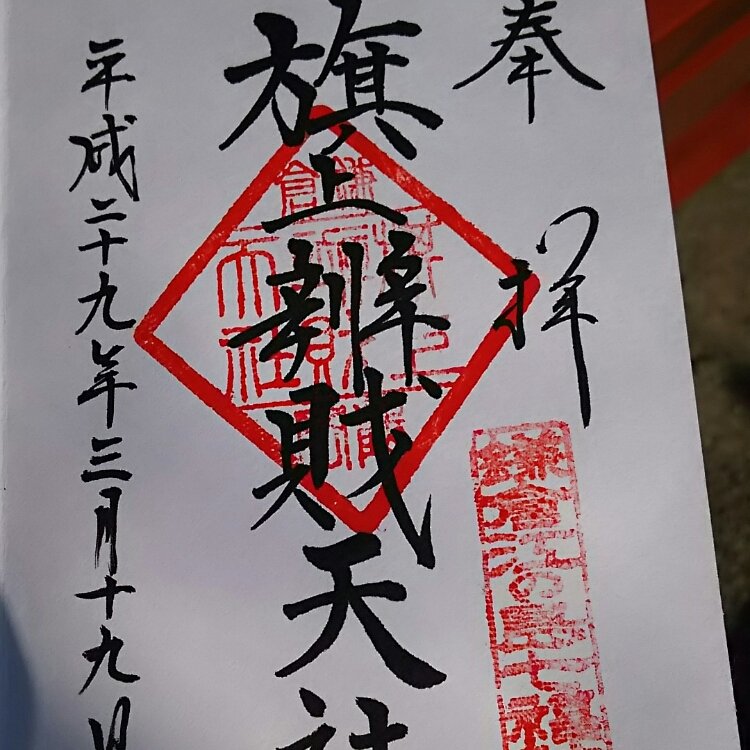 奉拝
鎌倉江の島七福
旗上辨財天社
平成二十九年三月十九日